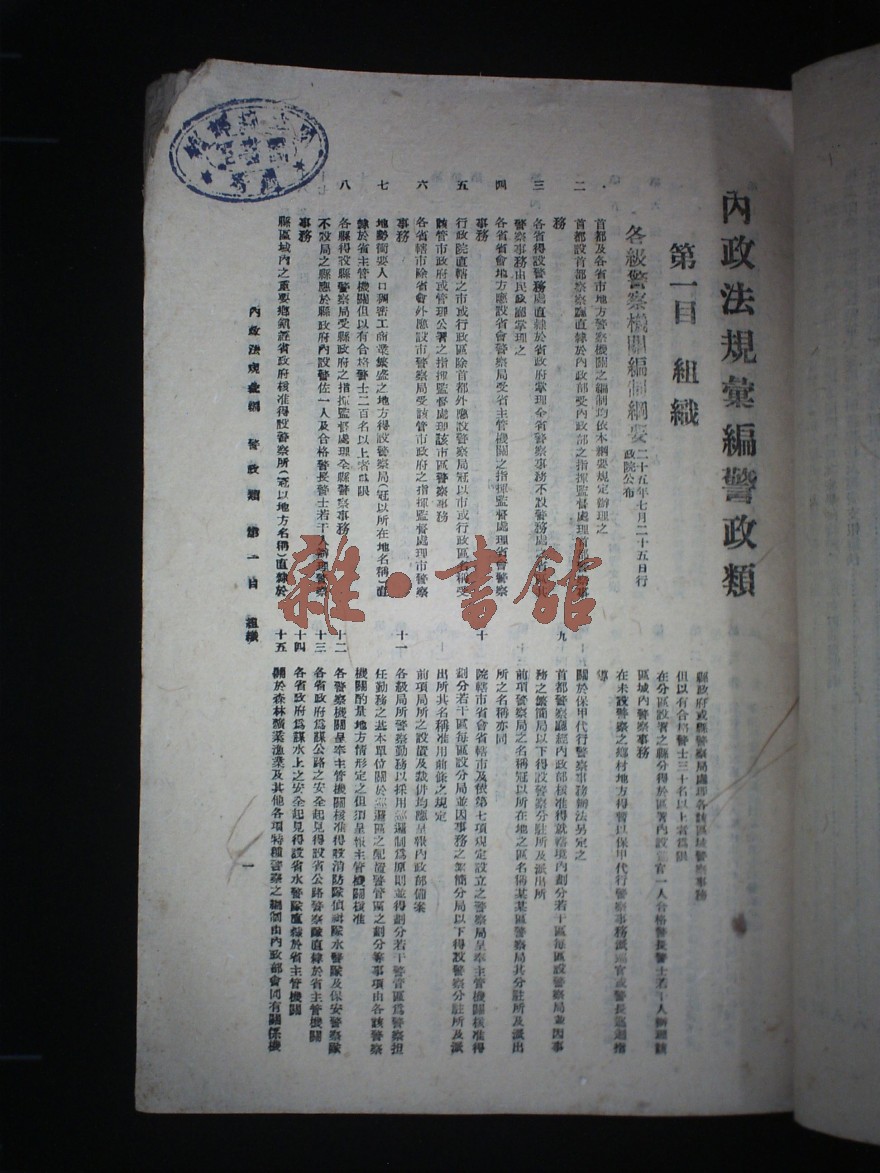 內政法規彙編警政類
第一目 組織
各級警察機關編制綱要 二十五年七月二十五日行政院公布
一 首都及各省市地方警察機關之編制均依本綱要規定辦理之
二 首都設首都警察廳直隸於內政部受內政部之指揮監督處理首都警察事
務
三 各省得設警務處直隸於省政府掌理全省警察事務不設警務處之省
警察事務由民政廳掌理之
四 各省省會地方應設省會警察局受省主管機關之指揮監督處理省會警察
事務
五 行政院直轄之市或行政區除首都外應設警察局冠以市或行政區
該管市政府或管理公署之指揮監督處理該市區警察事務
六 各省轄市除省會外應設市警察局受該管市政府之指揮監督處理市警察
事務
七 地勢衝要人口稠密工商業繁盛之地方得設警察局(冠以所在地名稱)直
隸於省主管機關但以有合格警士二百名以上者為限
八 各縣得設縣警察局受縣政府之指揮監督處理全縣警察事務
不設局之縣應於縣政府內設警佐一人及合格警長警士若干人
事務
縣區域內之重要鄉鎮經省政府核准得設警察所(冠以地方名稱)直隸於
縣政府或縣警察局處理各該區域警察事務
但以有合格警士三十名以上者為限
九 在分區設署之縣分得於區署內設
區域內警察事務
在未設警察之鄉村地方得暫以保甲代行警察事務
導
關於保甲代行警察事務辦法另定之
首都警察廳經內政部核准得就轄境內劃分若干區每區設警察局並因事
務之繁簡局以下得設警察分駐所及派出所
前項警察局之名稱冠以所在地之區名稱某某區警察局其分駐所及派出
所之名稱亦同
十 院轄市省會省轄市及依第七項規定設立之警察局呈奉主管機關核准得
劃分若干區每區設分局並因事務之繁簡分局以下得設警察分駐所及派
出所其名稱准用前條之規定
前項局所之設置及裁併均應呈報內政部備案
十一 各級局所警察勤務以採用巡邏制為原則並得劃分若干警管區為警察担
任勤務之基本單位關於巡邏區之配置警管區之劃分等事項由各該警察
機關酌量地方情形定之但須呈報主管機關核准
十二 各警察機關呈奉主管機關核准得設消防隊偵緝隊水警隊及保安警察隊
十三 各省政府為謀公路之安全起見得設省公路警察隊直隸於省主管機關
十四 各省政府為謀水上之安全起見得設省水警隊直隸於省主管機關
十五 關於森林礦業漁業及其他各項特種警察之編制由內政部會同有關係機
內政法規彙編 警政類 第一目 組織
一
雜·書館